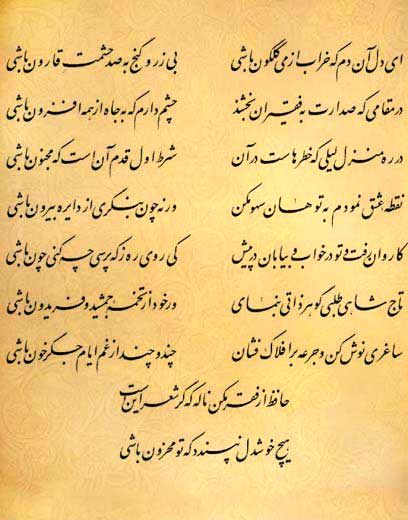 ای دل آن دم که خراب از می گلگون باشی بی زر و گنج به صد حشمت قارون باشی
در مقامی که صدارت به فقیران بخشند چشم دارم که به جاه از همه افزون باشی
در ره منزل لیلی که خطرهاست در آن شرط اول قدم آن است که مجنون باشی
نقطه عشق نمودم به تو هان سهو مکن ورنه چون بنگری از دایره بیرون باشی
کاروان رفت و تو در خواب و بیابان در پیش کی روی ره ز که پرسی چه کنی چون باشی
تاج شاهی طلبی گوهر ذاتی بنمای ور خود از تخمه جمشید و فریدون باشی
ساغری نوش کن و جرعه بر افلاک فشان چند و چند از غم ایام جگرخون باشی
حافظ از فقر مکن ناله که گر شعر این است
هیچ خوشدل نپسندد که تو محزون باشی